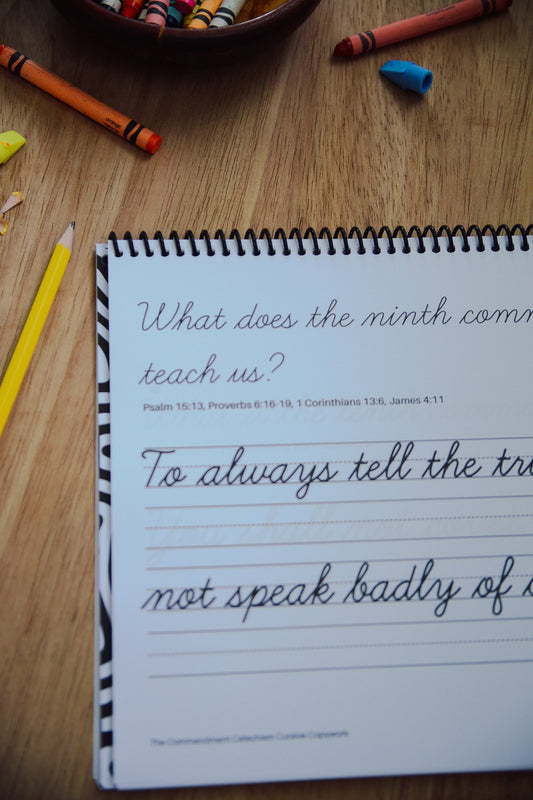 orange
What does the ninth comm
teach us?
Psalm 15:13, Proverbs 6:16-19, 1 Corinthians 13:6, James 4:11
To always tell the tru
You shall
not speak badly of
The Commandment Catechism Cursive Copywork